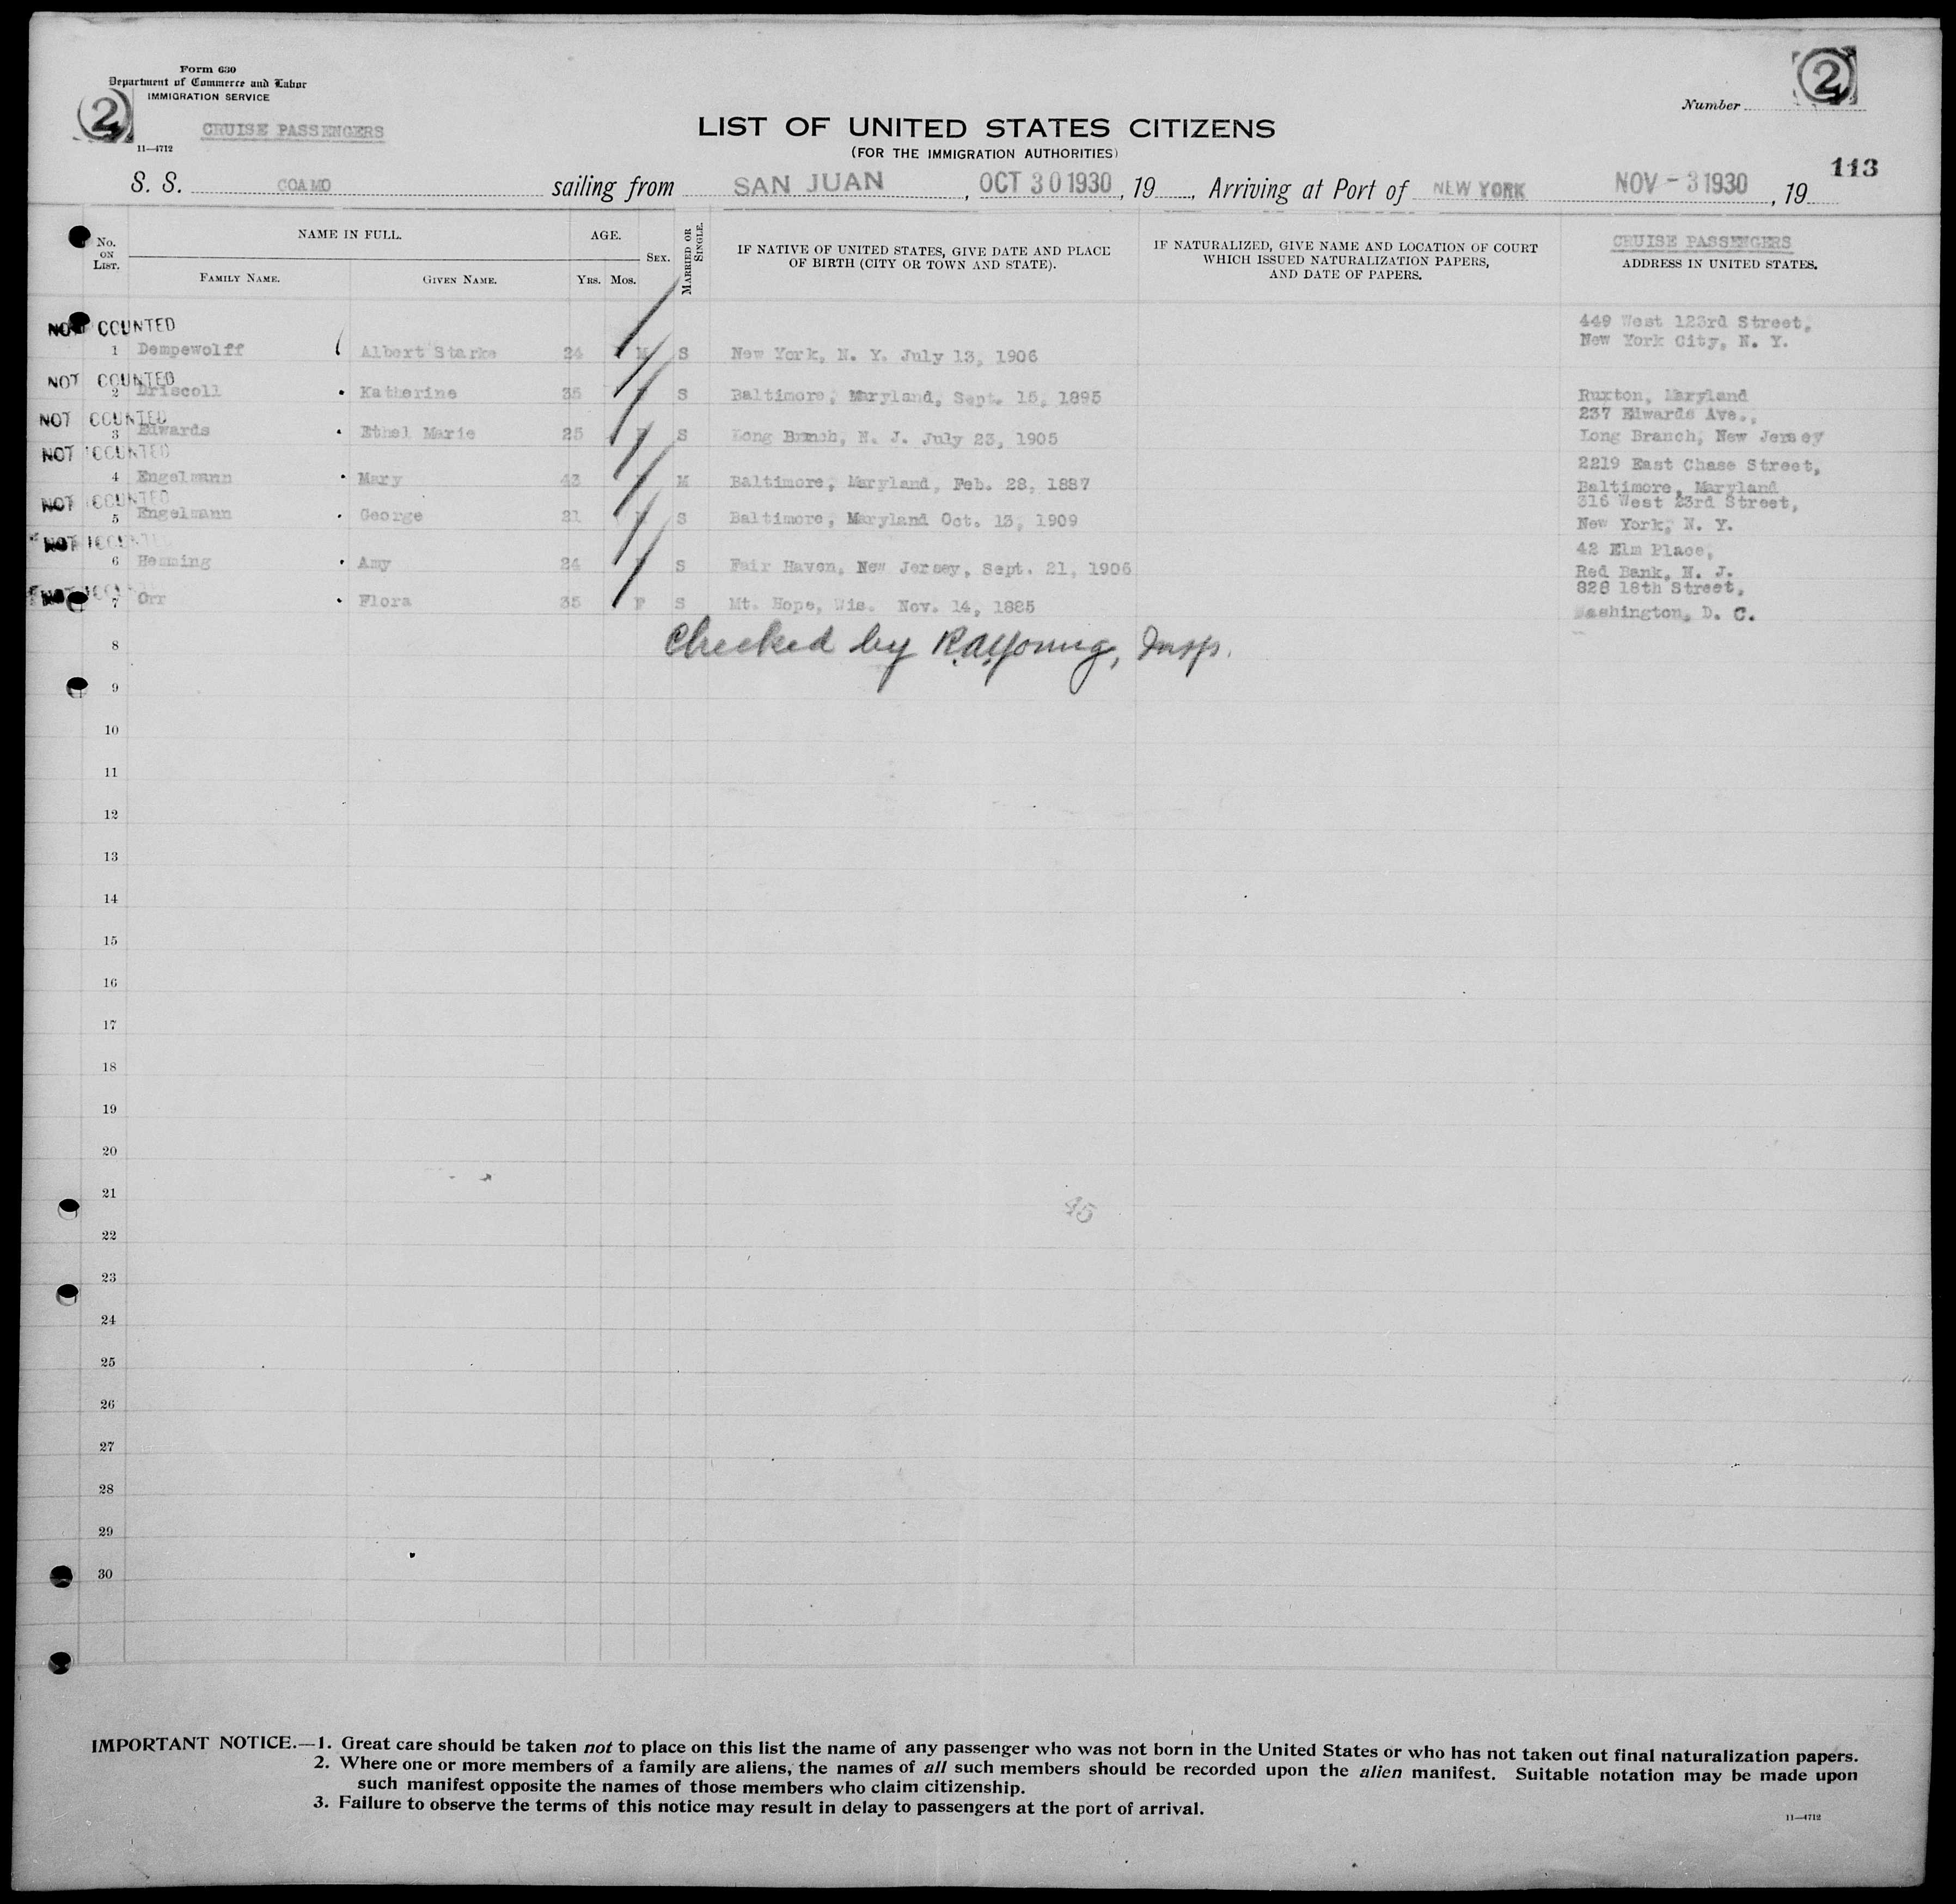 Form 630
Department of Commerce and Labor
IMMIGRATION SERVICE
2
CRUISE PASSENGERS
11—4712
LIST OF UNITED STATES CITIZENS
(FOR THE IMMIGRATION AUTHORITIES)
Number
2
113
S. S. COAMO sailing from SAN JUAN, OCT 30 1930, 19, Arriving at Port of NEW YORK NOV - 3 1930, 19
No. ON LIST.
NAME IN FULL.
FAMILY NAME. GIVEN NAME.
AGE.
YRS. MOS.
SEX.
MARRIED OR SINGLE.
IF NATIVE OF UNITED STATES, GIVE DATE AND PLACE
OF BIRTH (CITY OR TOWN AND STATE).
IF NATURALIZED, GIVE NAME AND LOCATION OF COURT
WHICH ISSUED NATURALIZATION PAPERS,
AND DATE OF PAPERS.
CRUISE PASSENGERS
ADDRESS IN UNITED STATES.
NOT COUNTED
449 West 123rd Street,
1 Dempewolff Albert Starke 24 M S New York, N. Y. July 13, 1906 New York City, N. Y.
NOT COUNTED
2 Driscoll Katherine 35 S Baltimore, Maryland, Sept. 15, 1895 Ruxton, Maryland
NOT COUNTED
237 Edwards Ave.,
3 Edwards Ethel Marie 25 F S Long Branch, N. J. July 23, 1905 Long Branch, New Jersey
NOT COUNTED
2219 East Chase Street,
4 Engelmann Mary 43 M Baltimore, Maryland, Feb. 28, 1887 Baltimore, Maryland
NOT COUNTED
316 West 23rd Street,
5 Engelmann George 21 M S Baltimore, Maryland Oct. 13, 1909 New York, N. Y.
NOT COUNTED
42 Elm Place,
6 Hemming Amy 24 S Fair Haven, New Jersey, Sept. 21, 1906 Red Bank, N. J.
NOT
828 18th Street,
7 Orr Flora 35 F S Mt. Hope, Wis. Nov. 14, 1885 Washington, D. C.
Checked by R.A. Young, Insp.
8
9
10
11
12
13
14
15
16
17
18
19
20
21
45
22
23
24
25
26
27
28
29
30
IMPORTANT NOTICE.—1. Great care should be taken not to place on this list the name of any passenger who was not born in the United States or who has not taken out final naturalization papers.
2. Where one or more members of a family are aliens, the names of all such members should be recorded upon the alien manifest. Suitable notation may be made upon
such manifest opposite the names of those members who claim citizenship.
3. Failure to observe the terms of this notice may result in delay to passengers at the port of arrival.
11—4712